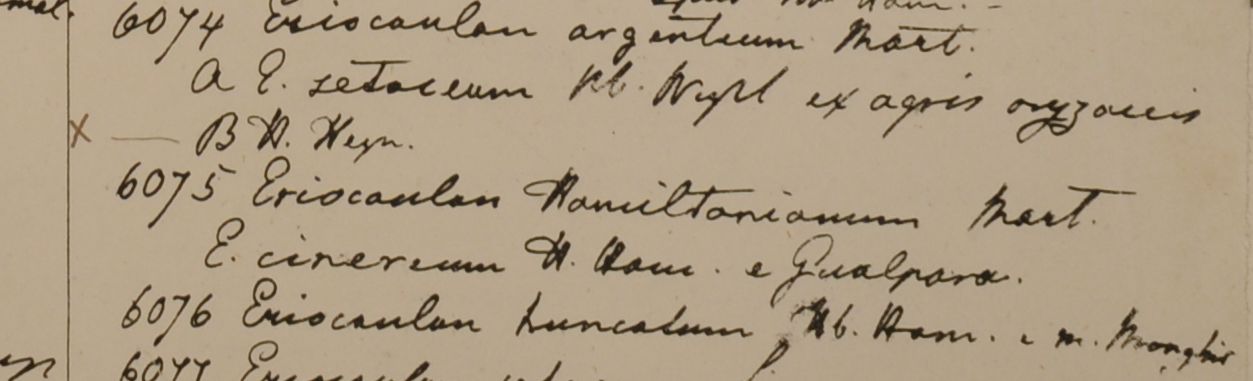 6074 Eriocaulon argenteum Mart.
A E. setaceum Hb. Wight ex agris oryzaceis
x — B H. Heyn.
6075 Eriocaulon Hamiltonianum Mart.
E. cinereum H. Ham. e Gualpara.
6076 Eriocaulon truncatum Hb. Ham. e m. Monghir
6077